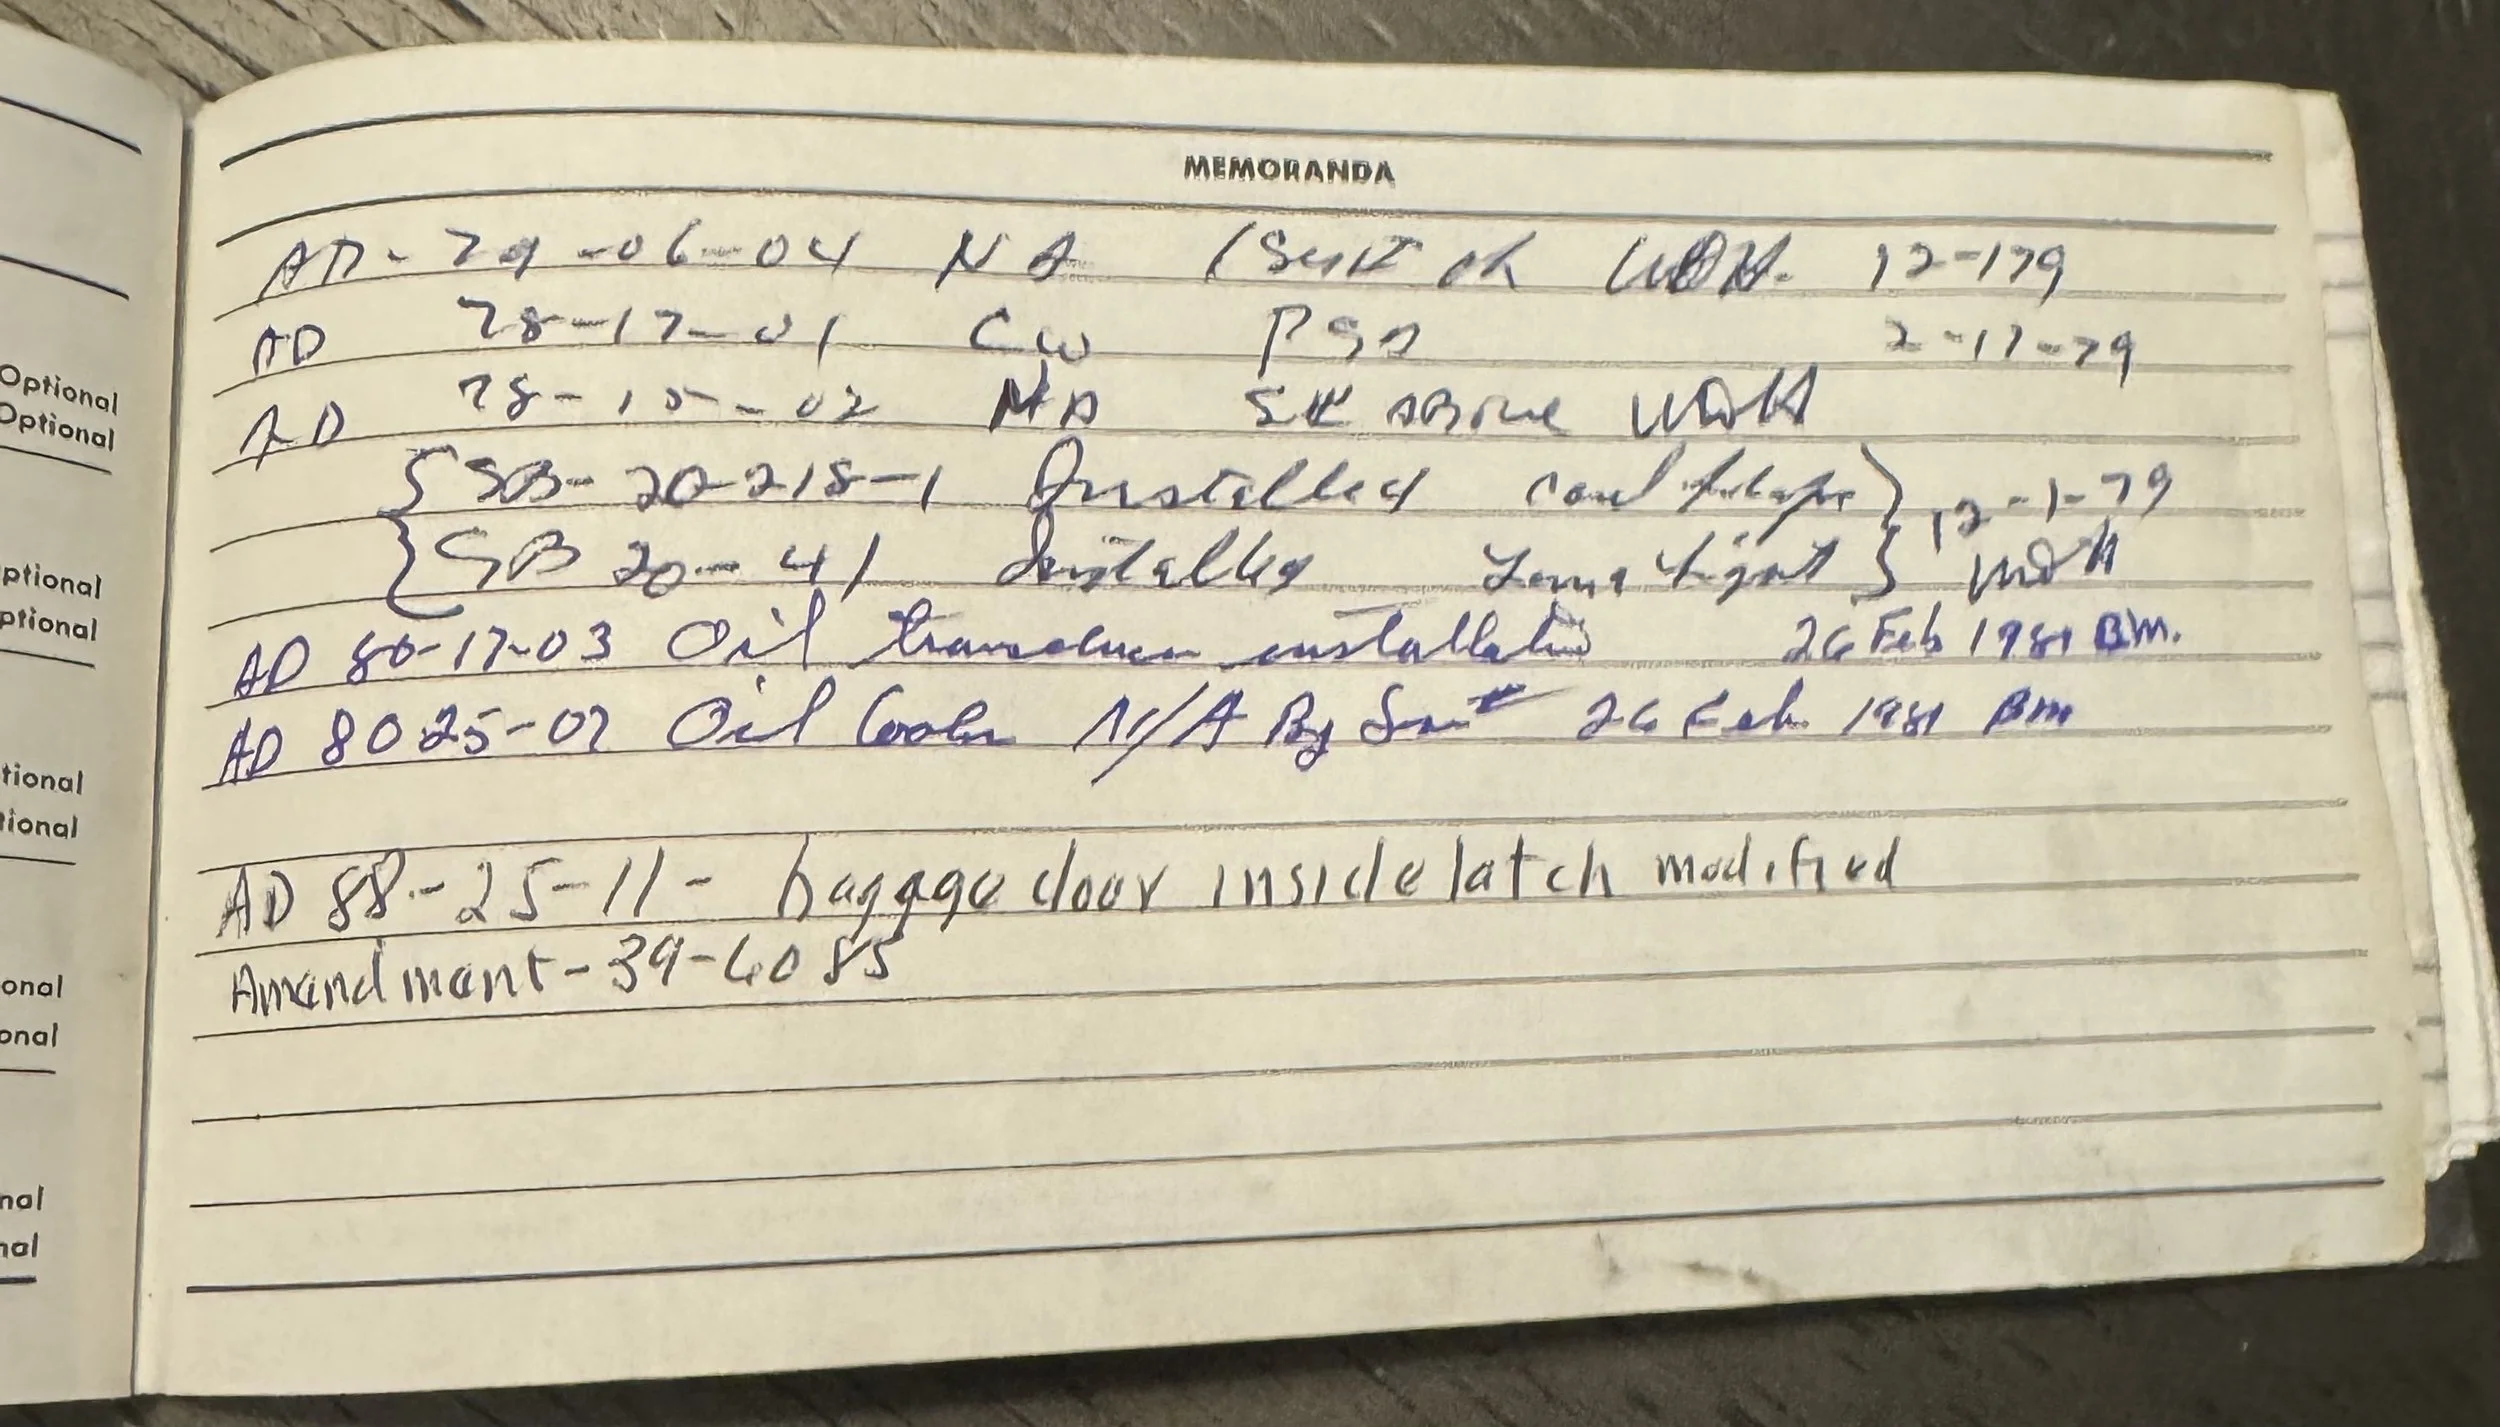 MEMORANDA
AD - 79-06-04 NA 12-179
AD 78-17-01 CW 2-17-79
AD 78-15-02 NA above WDH
SB-20-218-1 Installed 12-1-79
SB 20-41 Installed light WDH
AD 80-17-03 Oil installation 26 Feb 1981 BM.
AD 80 25-07 Oil Cooler N/A By 26 Feb. 1981 BM
AD 88-25-11 - baggage door inside latch modified
Amendment-39-6085
Optional
Optional
ptional
ptional
tional
tional
onal
onal
nal
nal